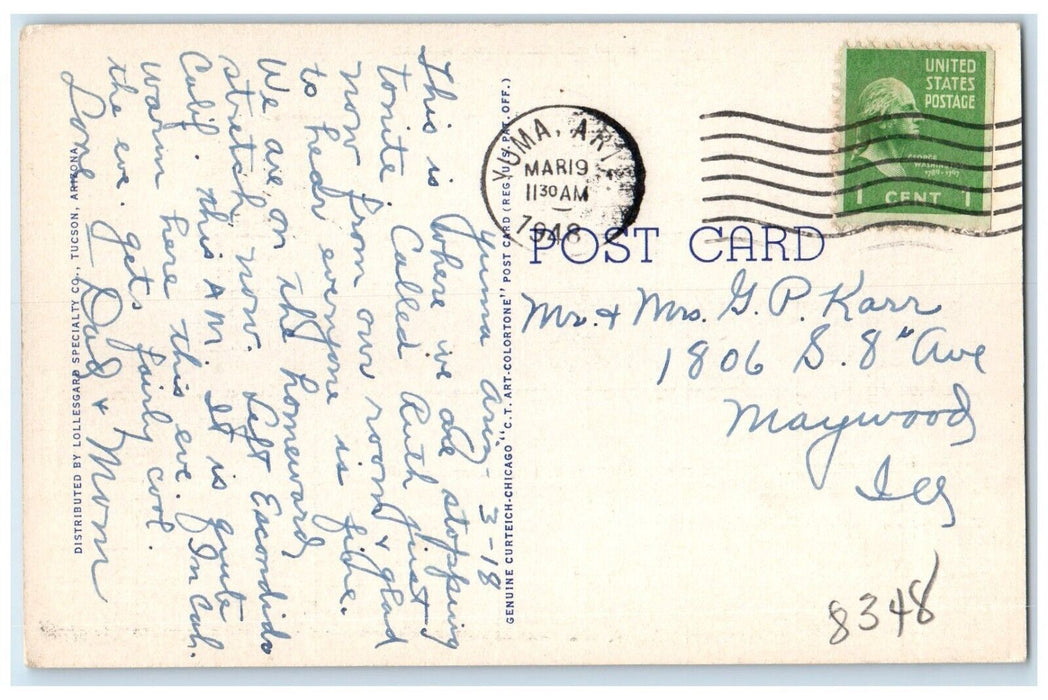 Yuma Ariz - 3-18
This is where we are stopping
tonite. Called Ruth just
now from our room & glad
to hear everyone is fine.
We are on the homeward
stretch, now. Left Escondido
Calif. this A M. It is quite
warm here this eve. In Cal.
the eve. gets fairly cool.
Love Dad & Mom
DISTRIBUTED BY LOLLESGARD SPECIALTY CO., TUCSON, ARIZONA
GENUINE CURTEICH-CHICAGO "C.T. ART-COLORTONE" POST CARD (REG. U.S. PAT. OFF.)
YUMA, ARIZ.
MAR 19
11 30 AM
1948
UNITED
STATES
POSTAGE
GEORGE
WASHINGTON
1789-1797
1 CENT 1
POST CARD
Mr. & Mrs. G. P. Karr
1806 S. 8" Ave
Maywood
Ill
8348